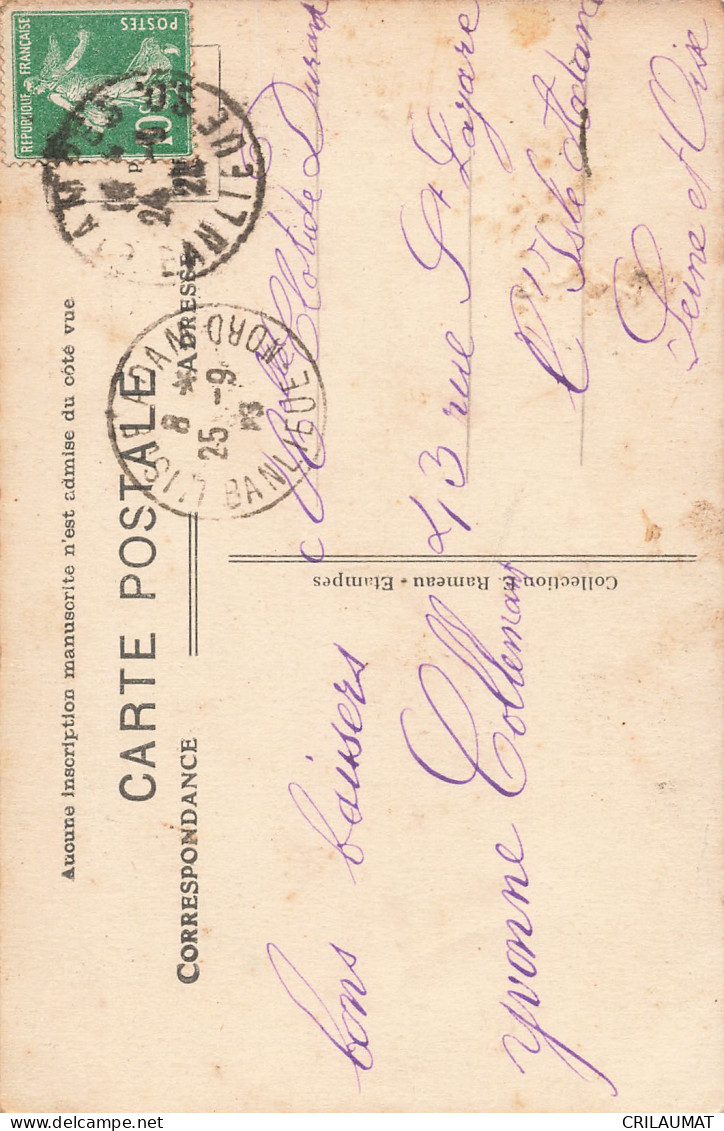 Aucune inscription manuscrite n'est admise du côté vue
CARTE POSTALE
CORRESPONDANCE
ADRESSE
POSTES
REPUBLIQUE FRANÇAISE
10
BANLIEUE
24
L'ISLE-ADAM
8 *
25 -9
BANLIEUE NORD
bons baisers
yvonne Collemant
Collection E. Rameau - Etampes
Clotilde Durand
43 rue St Lazare
l'Isle Adam
Seine et Oise
CRILAUMAT